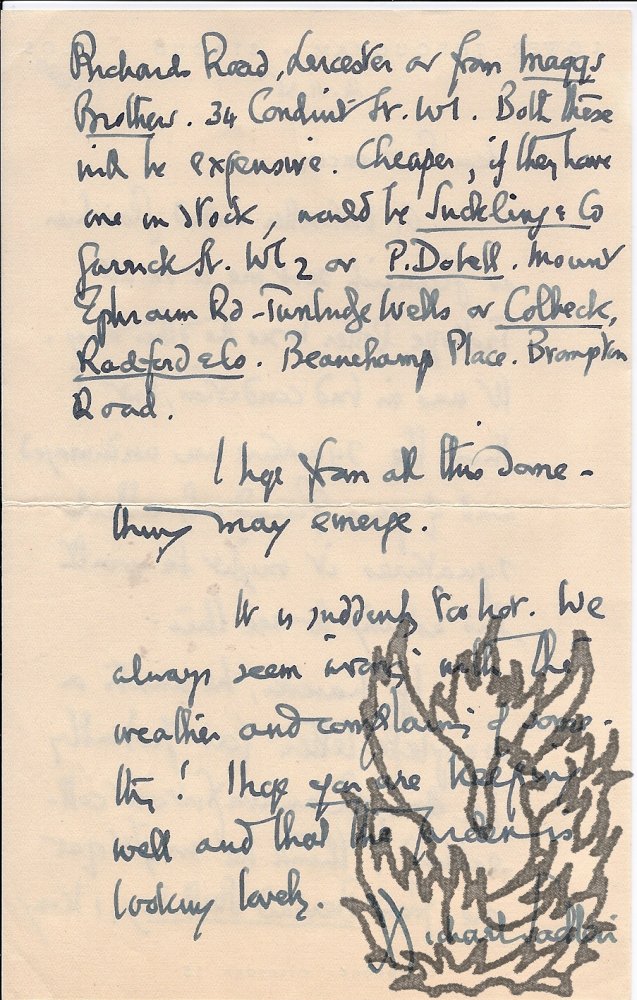 Richards Road, Leicester or from Maggs
Brothers. 34 Conduit St. W1. Both these
will be expensive. Cheaper, if they have
one in stock, would be Suckling & Co
Garrick St. WC2 or P. Dobell. Mount
Ephraim Rd - Tunbridge Wells or Colbeck,
Radford & Co. Beauchamp Place. Brompton
Road.
I hope from all this some-
thing may emerge.
It is suddenly too hot. We
always seem wrong with the
weather and complaining of some-
thing! I hope you are keeping
well and that the garden is
looking lovely.
Richard